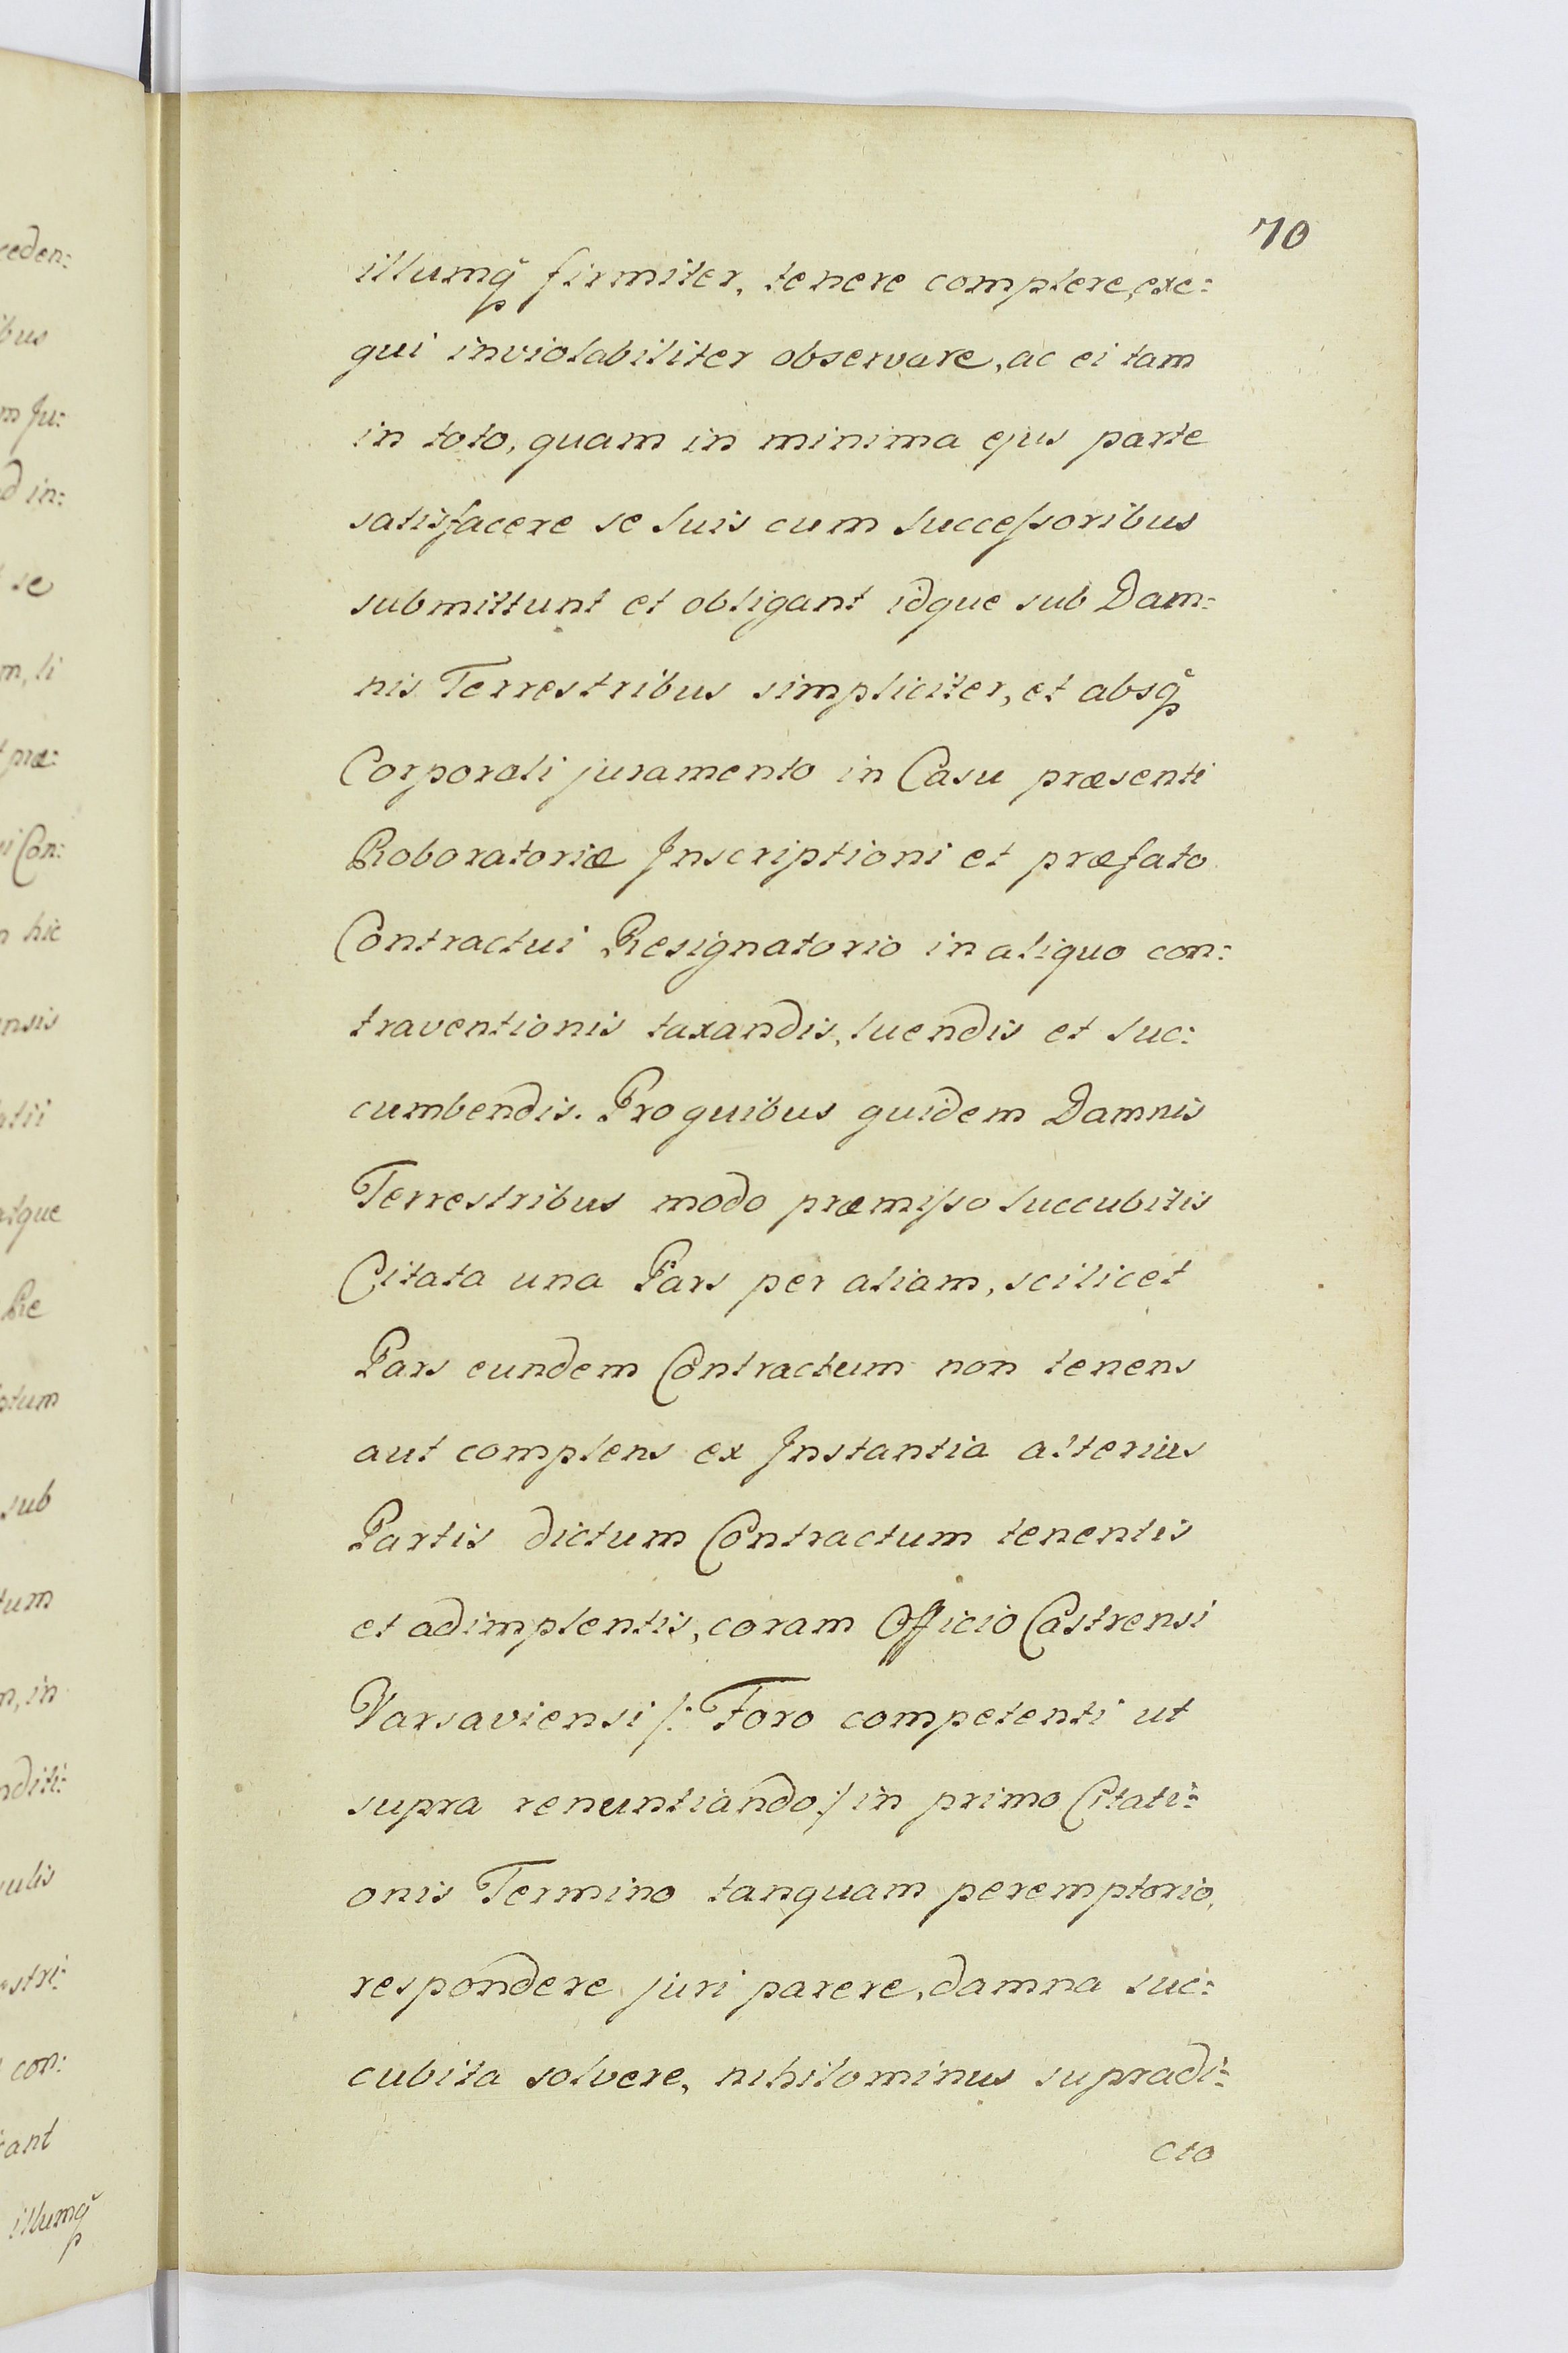 70
illumq̃ firmiter, tenere complere, exe:
qui inviolabiliter observare, ac ei tam
in toto, quam in minima ejus parte
satisfacere se suis cum successoribus
submittunt et obligant idque sub Dam:
nis Terrestribus simpliciter, et absq̃
Corporali juramento in Casu præsenti
Roboratoriæ Inscriptioni et præfato
Contractui Resignatorio in aliquo con:
traventionis taxandis, luendis et suc:
cumbendis. Pro quibus quidem Damnis
Terrestribus modo præmisso succubitis
Citata una Pars per aliam, scilicet
Pars eundem Contractum non tenens
aut complens ex Instantia alterius
Partis dictum Contractum tenentis
et adimplentis, coram Officio Castrensi
Varsaviensi /: Foro competenti ut
supra renuntiando :/ in primo Citati:
onis Termino tanquam peremptorio,
respondere, juri parere, damna suc:
cubita solvere, nihilominus supradi:
cto
ceden:
ibus
m Ju:
d in:
se
m, li
præ:
i Con:
hic
ensis
atii
atque
Re
tum
sub
tum
m, in
nditi:
ulis
estri:
con:
ant
illumq̃